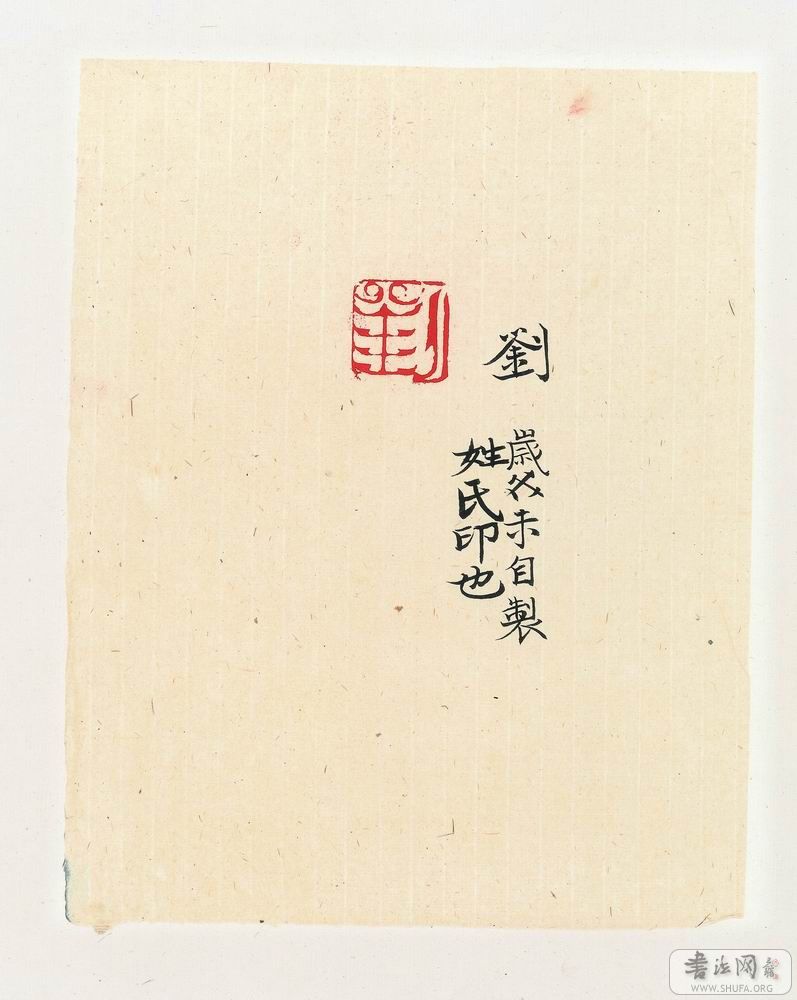 劉
劉
歲癸未自製
姓氏印也
書法网
WWW.SHUFA.ORG